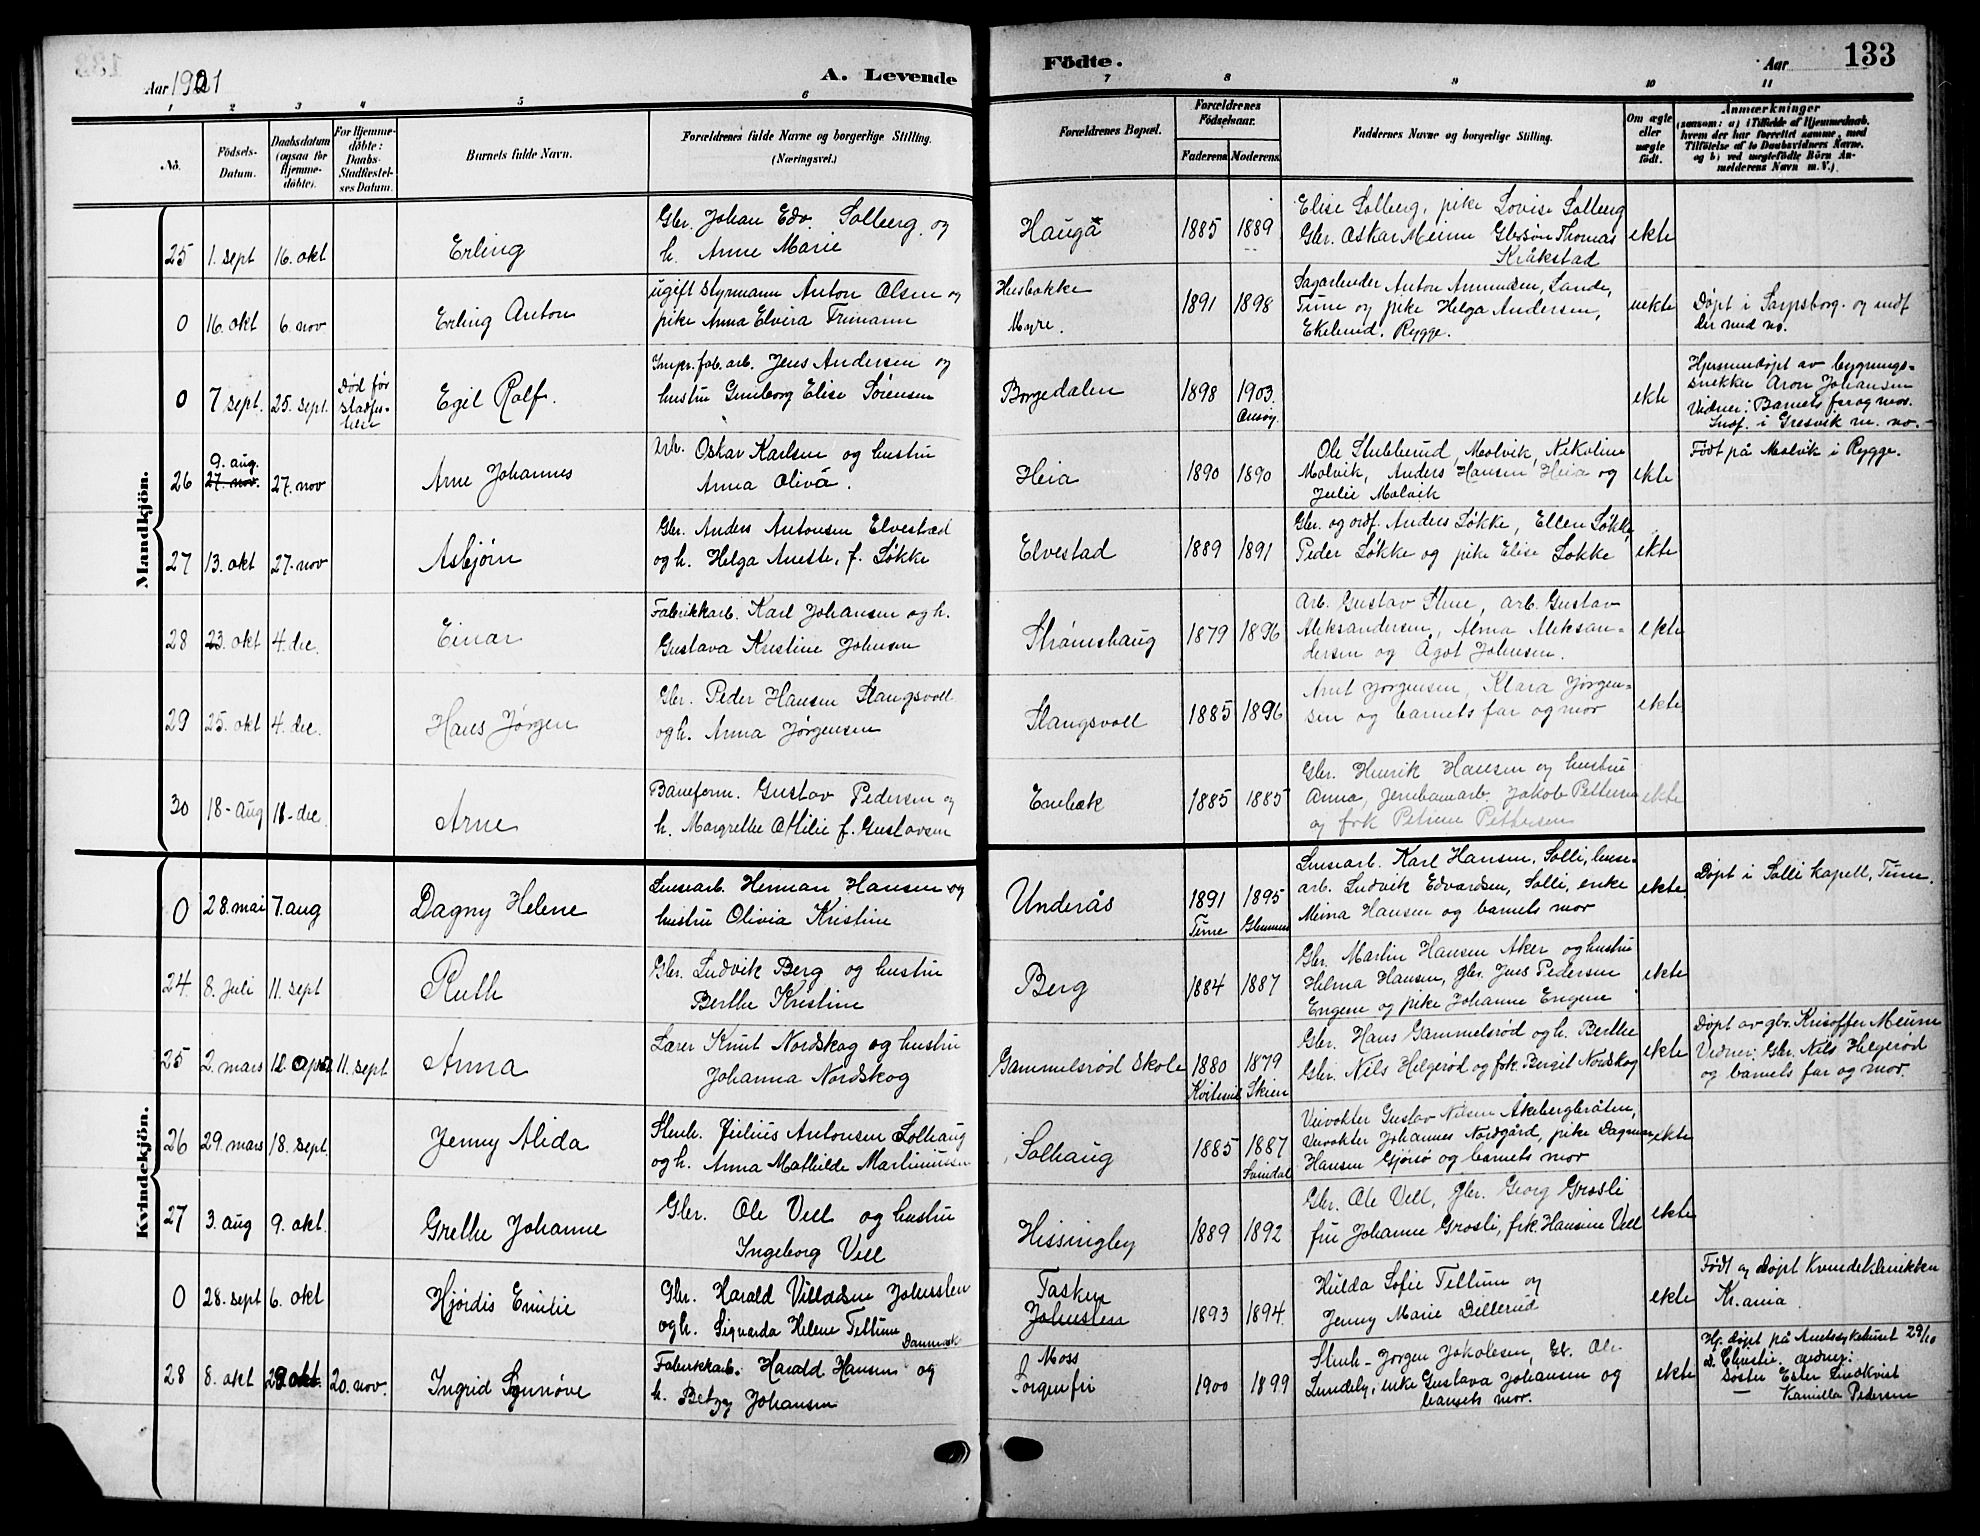 Aar 1921
A. Levende
Födte.
Aar
133
1 2 3 4 5 6 7 8 9 10 11
No.
Födsels-
Datum.
Daabsdatum
(ogsaa for
Hjemme-
döbte).
For Hjemme-
döbte:
Daabs-
Stadfæstel-
ses Datum.
Barnets fulde Navn.
Forældrenes fulde Navne og borgerlige Stilling.
(Næringsvei.)
Forældrenes Bopæl.
Forældrenes
Födselsaar.
Faderens
Moderens
Faddernes Navne og borgerlige Stilling.
Om ægte
eller
uægte
födt.
Anmærkninger
(saasom: a) i Tilfælde af Hjemmedaab,
hvem der har forrettet samme, med
Tilföielse af to Daabsvidners Navne.
og b) ved uægtefödte Börn An-
melderens Navn m. V.)
Mandkjön.
25 1. sept 16. okt Erling
Gbr. Johan Edv. Solberg og
h. Anne Marie
Hauga 1885 1889
Elise Solberg, pike Lovise Solberg
Gbr. Oskar Meum Gbrsøn Thomas
Kråkstad
ekte
0 16. okt 6. nov Erling Anton
ugift styrmann Anton Olsen og
pike Anna Elvira Frimann
Husbakke
Myre. 1891 1898
Sagarbeider Anton Amundsen, Lande,
Tune og pike Helga Andersen,
Ekelund. Rygge.
uekte
Døpt i Sarpsborg og indf
der med no.
0 7. sept. 25. sept.
Død før
stadfes-
telse
Egil Rolf.
Impr. fab. arb. Jens Andersen og
hustru Gunborg Elise Sørensen
Borgedalen 1898 1903.
Onsøy.
ekte
Hjemmedøpt av bygnings-
snekker Aron Johansen
Vidner: Barnets far og mor.
Indf. i Gresvik m. no. -
26 9. aug.
27. nov. 27. nov Arne Johannes
Arb. Oskar Karlsen og hustru
Anna Oliva.
Heia 1890 1890
Ole Stubberud, Molvik, Nikoline
Molvik, Anders Hansen Heia og
Julie Molvik
ekte
Født på Molvik i Rygge.
27 13. okt 27. nov Asbjørn
Gbr. Anders Antonsen Elvestad
og h. Helga Anette, f. Løkke
Elvestad 1889 1891
Gbr. og ordf. Anders Løkke, Ellen Løkke,
Peder Løkke og pike Elise Løkke
ekte
28 23. okt 4. dec. Einar
Fabrikkarb. Karl Johansen og h.
Gustava Kristine Johnsen
Strømshaug 1879 1896
Arb. Gustav Stene, arb. Gustav
Aleksandersen, Alma Aleksan-
dersen og Ågot Johnsen.
ekte
29 25. okt 4. dec. Hans Jørgen
Gbr. Peder Hansen Slangsvoll
og h. Anna Jørgensen
Slangsvoll 1885 1896
Arnt Jørgensen, Klara Jørgen-
sen og barnets far og mor
ekte
30 18-aug 11-dec Arne
Baneform. Gustav Pedersen og
h. Margrethe Otilie f. Gustavsen
Enebæk 1885 1885
Gbr. Henrik Hansen og hustru
Anna, Jernbanearb. Jakob Pettersen
og frk Petrine Pettersen
ekte
Kvindekjön.
0 28. mai 7. aug Dagny Helene
Linsearb. Herman Hansen og
hustru Olivia Kristine
Underås 1891 1895
Tune Glemmen
Linsearb. Karl Hansen, Solli, linse-
arb. Ludvik Edvardsen, Solli, enke
Mina Hansen og barnets mor
ekte
Døpt i Solli kapell, Tune.
24. 8. juli 11. sept Ruth
Gbr. Ludvik Berg og hustru
Berthe Kristine
Berg 1884 1887
Gbr. Martin Hansen Aker og hustru
Helma Hansen, gbr. Jens Pedersen
Engene og pike Johanne Engene
ekte
25 2. mars 12. april 11. sept Anna
Lærer Knut Nordskog og hustru
Johanna Nordskog
Gammelsrød Skole 1880 1879
Kviteseid Skien
Gbr. Hans Gammelsrød og h. Berthe
Gbr. Nils Helgerød og frk. Birgit Nordskog
ekte
Døpt av gbr. Kristoffer Meum
Vidner: Gbr. Nils Helgerød
og barnets far og mor.
26 29. mars 18. sept. Jenny Alida
Stenh. Julius Antonsen Solhaug
og h. Anna Mathilde Martinusen
Solhaug 1885 1887
Svindal
Veivokter Gustav Nilsen Åkebergbråten,
Veivokter Johannes Nordgård, pike Dagmar
Hansen Gjørsø og barnets mor
ekte
27 3. aug 9. okt. Grethe Johanne
Gbr. Ole Vell og hustru
Ingeborg Vell
Hissingby 1889 1892
Gbr. Ole Vell, Gbr. Georg Grosli
fru Johanne Grosli, frk. Hansine Vell
ekte
0 28. sept 6. okt Hjørdis Emilie
Gbr. Harald Villadsen Johnsslen
og h. Sigvarda Helene Tellum
Danmark
Tasken
Johnslen 1893 1894.
Hulda Sofie Tellum og
Jenny Marie Dellerud
ekte
Født og døpt Kvindeklinikken
Kr.ania.
28 8. okt 29. okt. 20. nov. Ingrid Synnøve
Fabrikkarb. Harald Hansen og
h. Betzy Johansen
Moss
Sorgenfri 1900 1899
Stenh. Jørgen Jakobsen, Gb. Ole
Lundeby, enke Gustava Johansen og
barnets mor.
ekte
Hj. døpt på Amtssykehuset 29/10
D. Christie. vidner:
Søster Ester Lindkvist
— Kamilla Pedersen